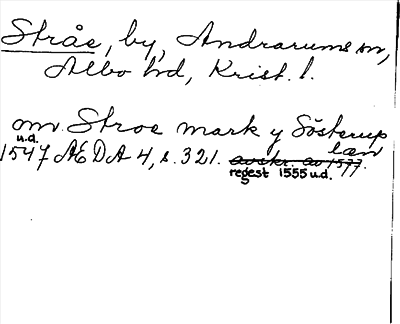 Stråe, by, Andrarums sn,
Albo hd, Krist. l.
om Stroe mark y Sösterup
u.d. læn
1547 ÆDA 4, s. 321. avskr. av 1577.
regest 1555 u.d.